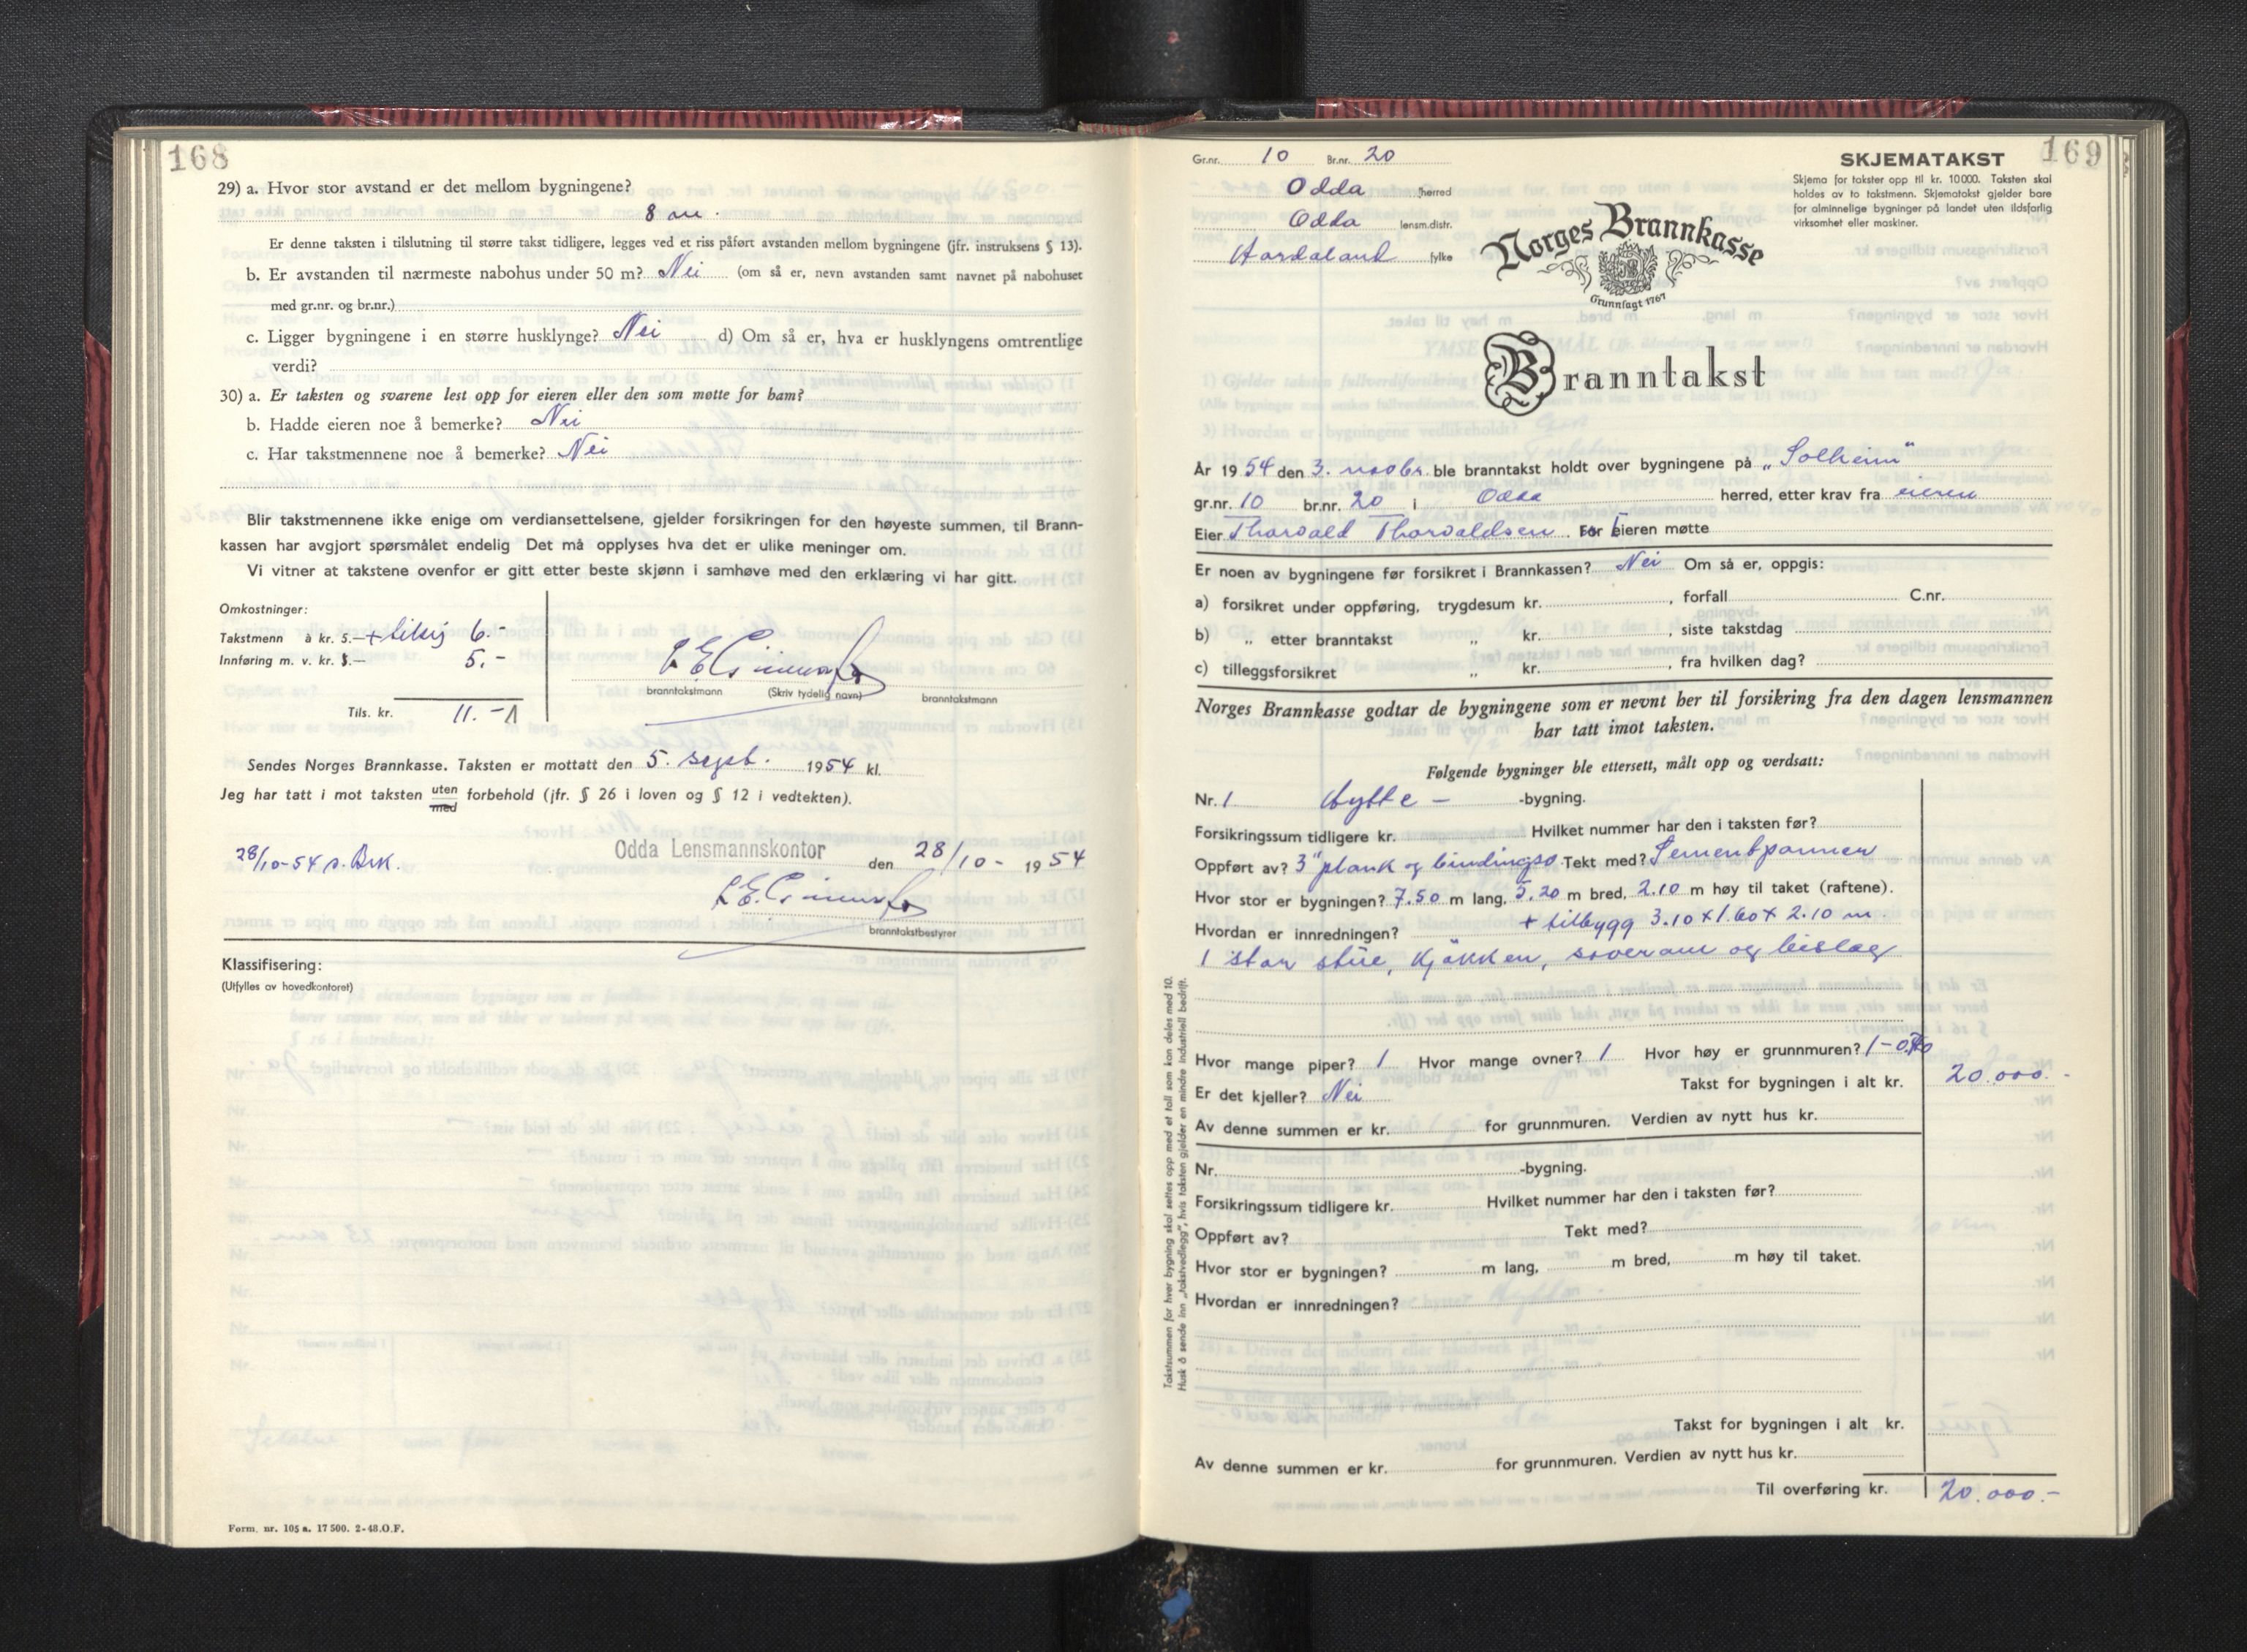 168
29) a. Hvor stor avstand er det mellom bygningene?
8 m.
Er denne taksten i tilslutning til større takst tidligere, legges ved et riss påført avstanden mellom bygningene (jfr. instruksens § 13).
b. Er avstanden til nærmeste nabohus under 50 m? Nei (om så er, nevn avstanden samt navnet på nabohuset
med gr.nr. og br.nr.)
c. Ligger bygningene i en større husklynge? Nei d) Om så er, hva er husklyngens omtrentlige
verdi?
30) a. Er taksten og svarene lest opp for eieren eller den som møtte for ham?
b. Hadde eieren noe å bemerke? Nei
c. Har takstmennene noe å bemerke? Nei
Blir takstmennene ikke enige om verdiansettelsene, gjelder forsikringen for den høyeste summen, til Brann-
kassen har avgjort spørsmålet endelig Det må opplyses hva det er ulike meninger om.
Vi vitner at takstene ovenfor er gitt etter beste skjønn i samhøve med den erklæring vi har gitt.
Omkostninger:
Takstmenn à kr. 5.— + 6.-
Innføring m. v. kr. 5.— 5.-
branntakstmann (Skriv tydelig navn) branntakstmann
Tils. kr. 11.-
Sendes Norges Brannkasse. Taksten er mottatt den 5. sept. 1954 kl.
Jeg har tatt i mot taksten uten med forbehold (jfr. § 26 i loven og § 12 i vedtekten).
28/10-54 p. Brk.
Odda Lensmannskontor den 28/10- 1954
branntakstbestyrer
Klassifisering:
(Utfylles av hovedkontoret)
Form. nr. 105 a. 17 500. 2-48.O.F.
169
Gr.nr. 10 Br.nr. 20
Odda herred
Odda lensm.distr.
Hordaland fylke
SKJEMATAKST
Skjema for takster opp til kr. 10 000. Taksten skal
holdes av to takstmenn. Skjematakst gjelder bare
for alminnelige bygninger på landet uten ildsfarlig
virksomhet eller maskiner.
Norges Brannkasse
Grunnlagt 1767
Branntakst
År 1954 den 3. novbr. ble branntakst holdt over bygningene på „Solheim"
gr.nr. 10 br.nr. 20 i Odda herred, etter krav fra eieren
Eier Thorvald Thorvaldsen. For Eieren møtte
Er noen av bygningene før forsikret i Brannkassen? Nei Om så er, oppgis:
a) forsikret under oppføring, trygdesum kr. , forfall C.nr.
b) „ etter branntakst „ kr. , siste takstdag
c) tilleggsforsikret „ kr. , fra hvilken dag?
Norges Brannkasse godtar de bygningene som er nevnt her til forsikring fra den dagen lensmannen
har tatt imot taksten.
Følgende bygninger ble ettersett, målt opp og verdsatt:
Nr. 1 Hytte - -bygning.
Forsikringssum tidligere kr. Hvilket nummer har den i taksten før?
Oppført av? 3" plank og bindingsv. Tekt med? Sementpanner
Hvor stor er bygningen? 7.50 m lang, 5.20 m bred, 2.10 m høy til taket (raftene).
+ tilbygg 3.10 x 1.60 x 2.10 m.
Hvordan er innredningen?
1 stor stue, kjøkken, soverom og bislag
Hvor mange piper? 1 Hvor mange ovner? 1 Hvor høy er grunnmuren?
Er det kjeller? Nei Takst for bygningen i alt kr. 20.000.-
Av denne summen er kr. for grunnmuren. Verdien av nytt hus kr.
Nr. -bygning.
Forsikringssum tidligere kr. Hvilket nummer har den i taksten før?
Oppført av? Tekt med?
Hvor stor er bygningen? m lang, m bred, m høy til taket.
Hvordan er innredningen?
Takst for bygningen i alt kr.
Av denne summen er kr. for grunnmuren. Verdien av nytt hus kr.
Til overføring kr. 20.000.-
Takstsummen for hver bygning skal settes opp med et tall som kan deles med 10.
Husk å sende inn „takstvedlegg", hvis taksten gjelder en mindre industriell bedrift.